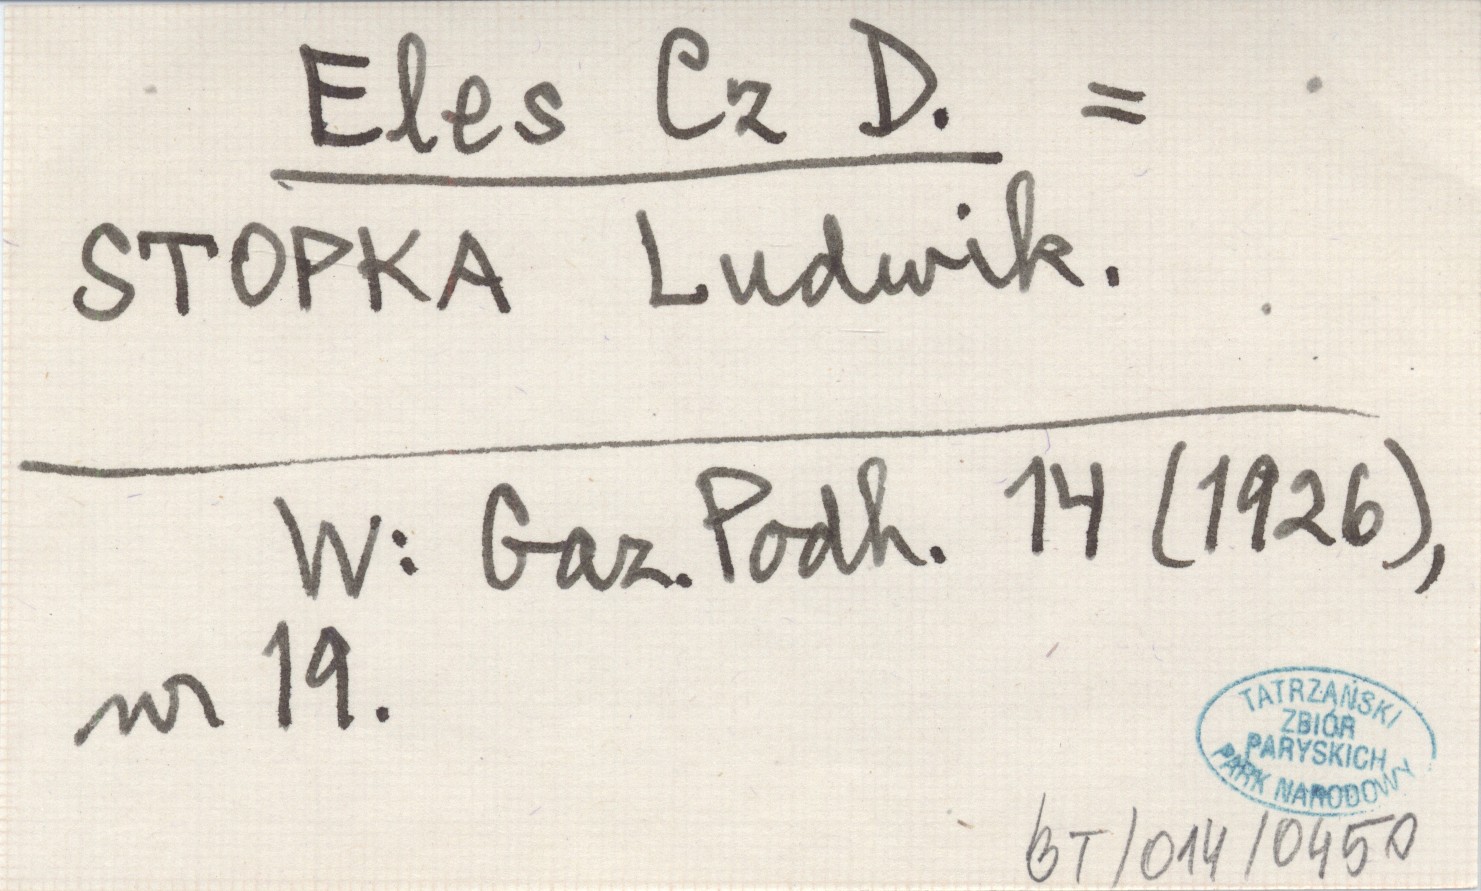 Eles Cz D. =
STOPKA Ludwik.
W: Gaz. Podh. 14 (1926),
nr 19.
TATRZAŃSKI
ZBIÓR
PARYSKICH
PARK NARODOWY
BT/014/0450